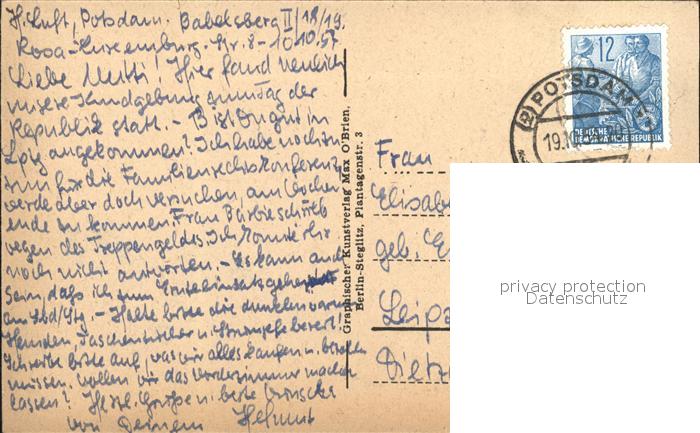 H. Luft, Potsdam-Babelsberg II/18/19.
Rosa-Luxemburg-Str. 8 - 10.10.57
Liebe Mutti! Hier fand neulich
unsere Kundgebung zum Tag der
Republik statt. - Bist Du gut in
Lpzg angekommen? Ich habe noch zu
tun für die Familienrechtskonferenz
werde aber doch versuchen, am Wochen
ende zu kommen. Frau Barbie schrieb
wegen des Treppengeldes. Ich konnte ihr
noch nicht antworten. - Es kann auch
sein, daß ich zum Ernteeinsatz gehe
am Sbd/Stg. - Halte bitte die dunklen
Hemden, Taschentücher u. Strümpfe bereit.
Schreibe bitte auf, was wir alles kaufen u. bezahlen
müssen. Wollen wir das Vorderzimmer machen
lassen? Herzl. Grüße u. beste Wünsche
von Deinem Helmut
Graphischer Kunstverlag Max O'Brien,
Berlin-Steglitz, Plantagenstr. 3
12
DEUTSCHE
DEMOKRATISCHE REPUBLIK
(2) POTSDAM
Frau
Elisab
geb.
Leipz
Dietz
privacy protection
Datenschutz